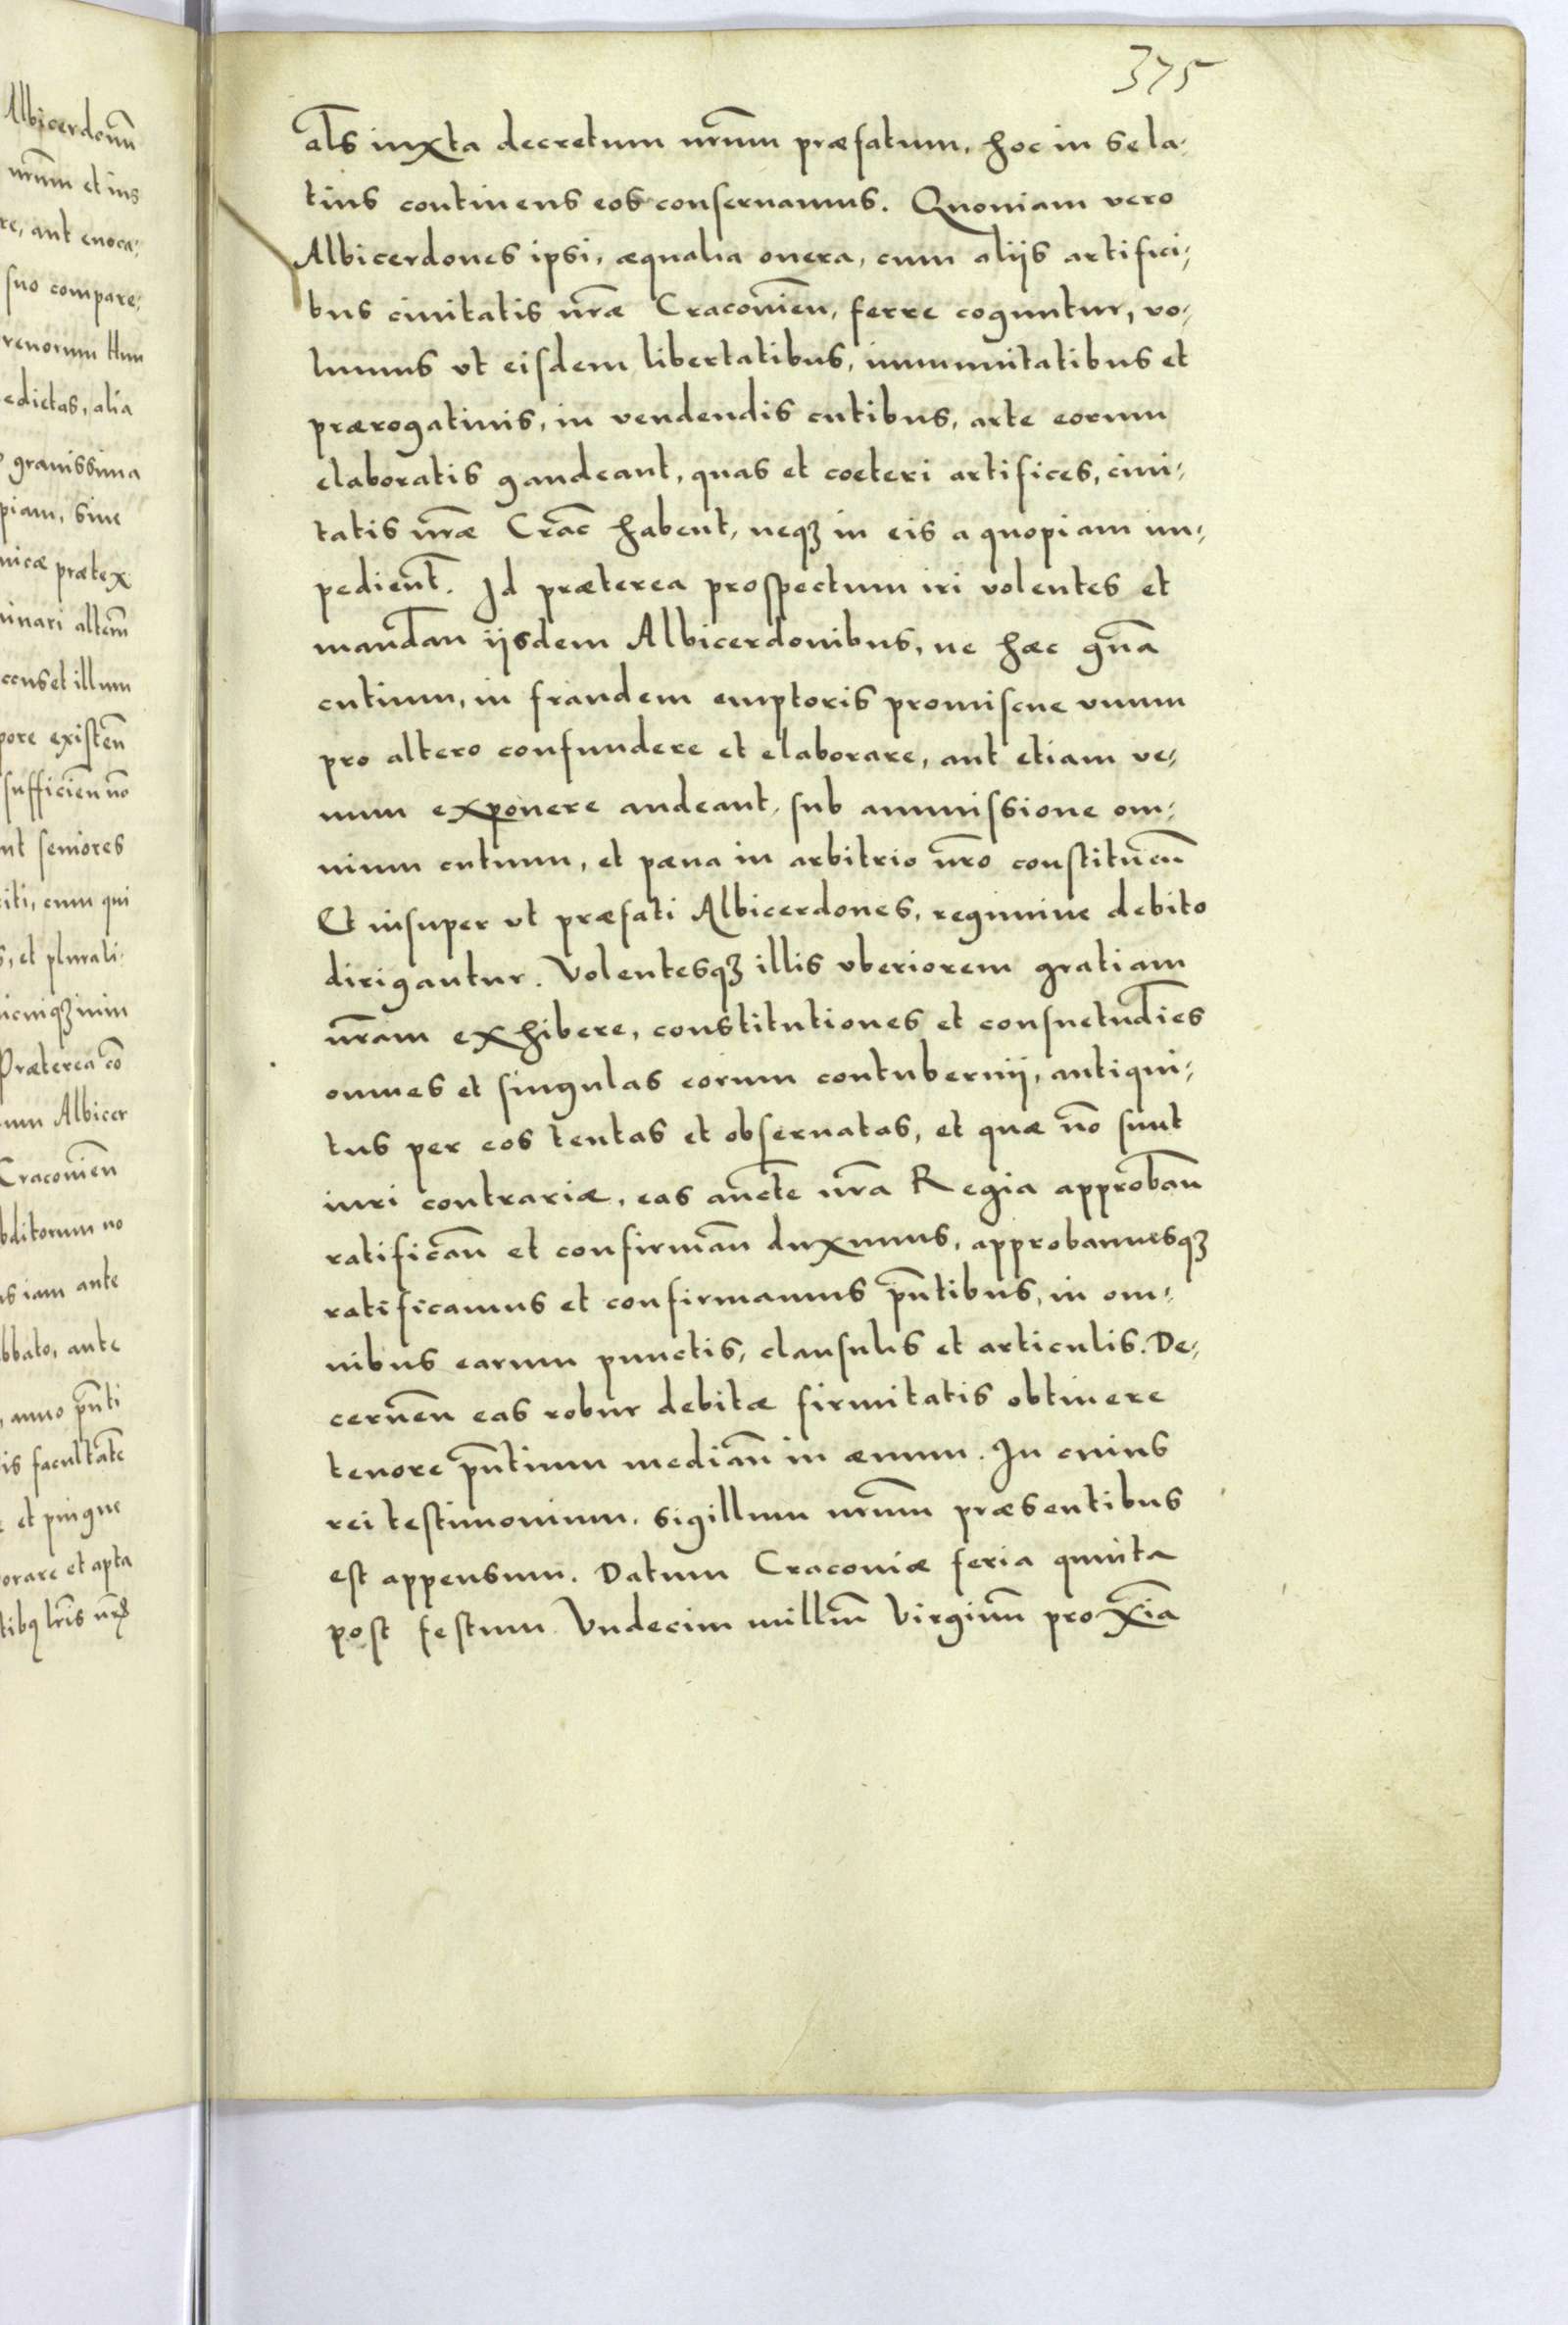 375
al̄s iuxta decretum nr̄um præfatum, hoc in se la-
tius continens eos conseruamus. Quoniam vero
Albicerdones ipsi, æqualia onera, cum aliis artifici-
bus ciuitatis nr̄æ Cracouien̄, ferre coguntur, vo-
lumus vt eisdem libertatibus, immunitatibus et
prærogatiuis, in vendendis cutibus, arte eorum
elaboratis gaudeant, quas et coeteri artifices, ciui-
tatis nr̄æ Crac̄ habent, neqꝫ in eis a quopiam im-
pedient̄. Id præterea prospectum iri volentes et
mandan̄ iisdem Albicerdonibus, ne hæc gn̄a
cutium, in fraudem emptoris promiscue vnum
pro altero confundere et elaborare, aut etiam ve-
num exponere audeant, sub ammissione om-
nium cutium, et pæna in arbitrio nr̄o constituen̄
Et insuper vt præfati Albicerdones, regimine debito
dirigantur. Volentesqꝫ illis vberiorem gratiam
nr̄am exhibere, constitutiones et consuetudīes
omnes et singulas eorum contubernij, antiqui-
tus per eos tentas et obseruatas, et quæ nō sunt
iuri contrariæ, eas auctē nr̄a Regia approban̄
ratifican̄ et confirman̄ duximus, approbamusqꝫ
ratificamus et confirmamus pn̄tibus, in om-
nibus earum punctis, clausulis et articulis. De-
cernen̄ eas robur debitæ firmitatis obtinere
tenore pn̄tium median̄ in æuum. In cuius
rei testimonium, sigillum nr̄um præsentibus
est appensum. Datum Cracouiæ feria quinta
post festum Vndecim milliū Virginū proxīa
Albicerdonū
nr̄um et ius
re, aut euoca-
suo compare-
edictas, alia
grauissima
piam, siue
nicæ prætex
inari alterū
et illum
pore existen̄
sufficien̄ nō
nt seniores
iti, cum qui
s, et plurali-
Præterea cō
um Albicer
Cracouien̄
bditorum no
s iam ante
bbato, ante
, anno pn̄ti
is facultatē
et pingue
orare et apta